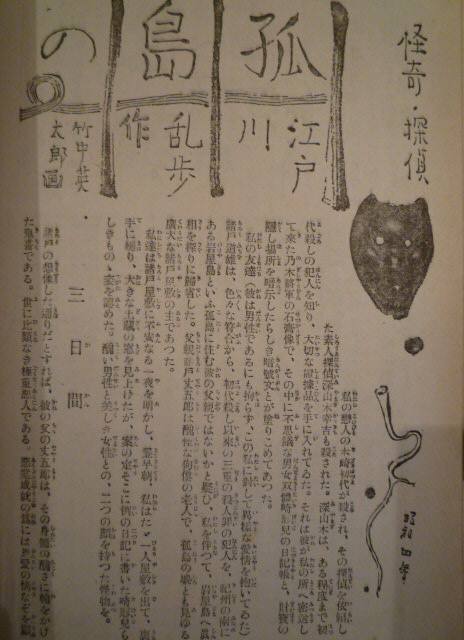 怪奇・探偵
孤島の
江戸川乱歩作
竹中英太郎画
昭和四年
私の戀人の木崎初代が殺され、その探偵を依頼し
た素人探偵深山木幸吉も殺された。深山木は、ある程度まで初
代殺しの犯人を知り、大切な證據品を手に入れてゐた。それは彼が私の所へ密送し
て來た乃木將軍の石膏像で、その中に不思議な男女双體畸形兒の日記帳と、財寶の
隱し場所を暗示したらしき暗號文とが塗りこめてあつた。
私の友達（彼は男性であるにも拘らず、この私に對して異樣な愛情を抱いてゐた）
諸戸道雄は、色々な符合から、初代殺し以來の三重の殺人の犯人を、紀州の南に
ある岩屋島といふ孤島に住む彼の父親ではないかと疑ひ、私を伴つて、岩屋島へ眞
相を探りに歸省した。父親諸戸丈五郎は醜怪な佝僂の老人で、孤島の城とも見ゆる
廣大な諸戸屋敷の主であつた。
私達は諸戸屋敷に不安なる一夜を明かし、翌早朝、私はたゞ一人屋敷を出て、裏
手に廻り、大きな土藏の窓を見上げたが、案の定そこに例の日記に書いた畸形兒ら
しきものゝ姿を認めた。醜い男性と美しき女性との、二つの顏を持つた怪物を。
三日間
諸戸の想像した通りだとすれば、彼の父の丈五郎は、その身體の醜さに輪をかけ
た鬼畜である。世に比類なき極重惡人である。惡業成就の爲には恩愛の情なぞを顧